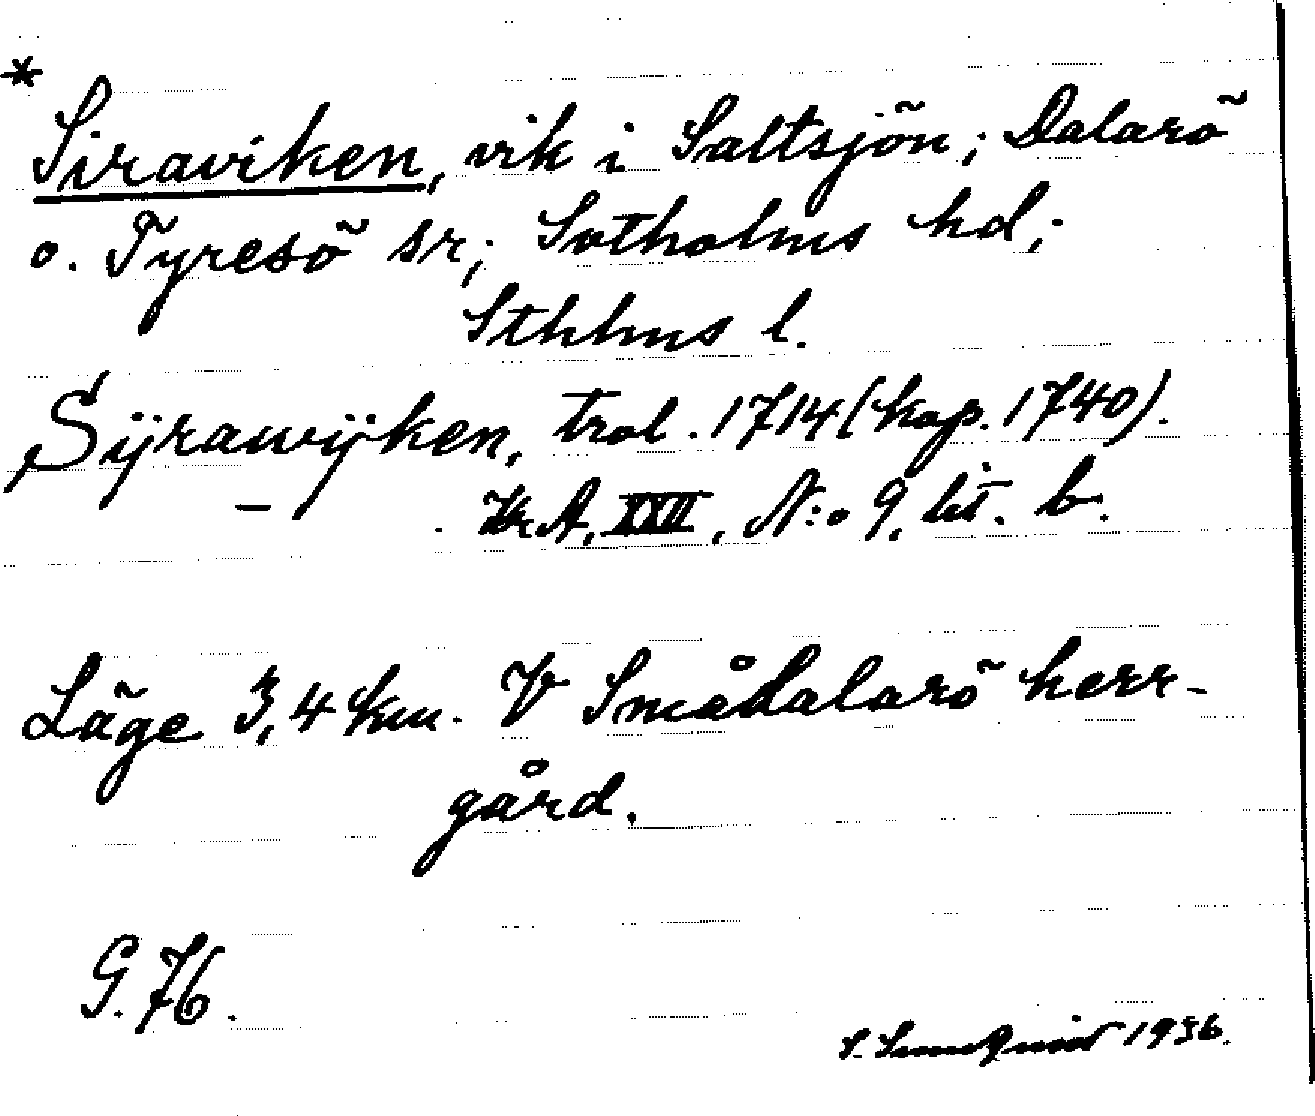 *
Siraviken, vik i Saltsjön; Dalarö
o. Tyresö sr; Sotholms hd;
Sthlms l.
Sÿrawÿken, trol. 1714 (kop. 1740).
Kr. A, XXII, N:o 9, lit. b.
Läge 3,4 km. V Smådalarö herr-
gård.
G. 76.
S. 1936.